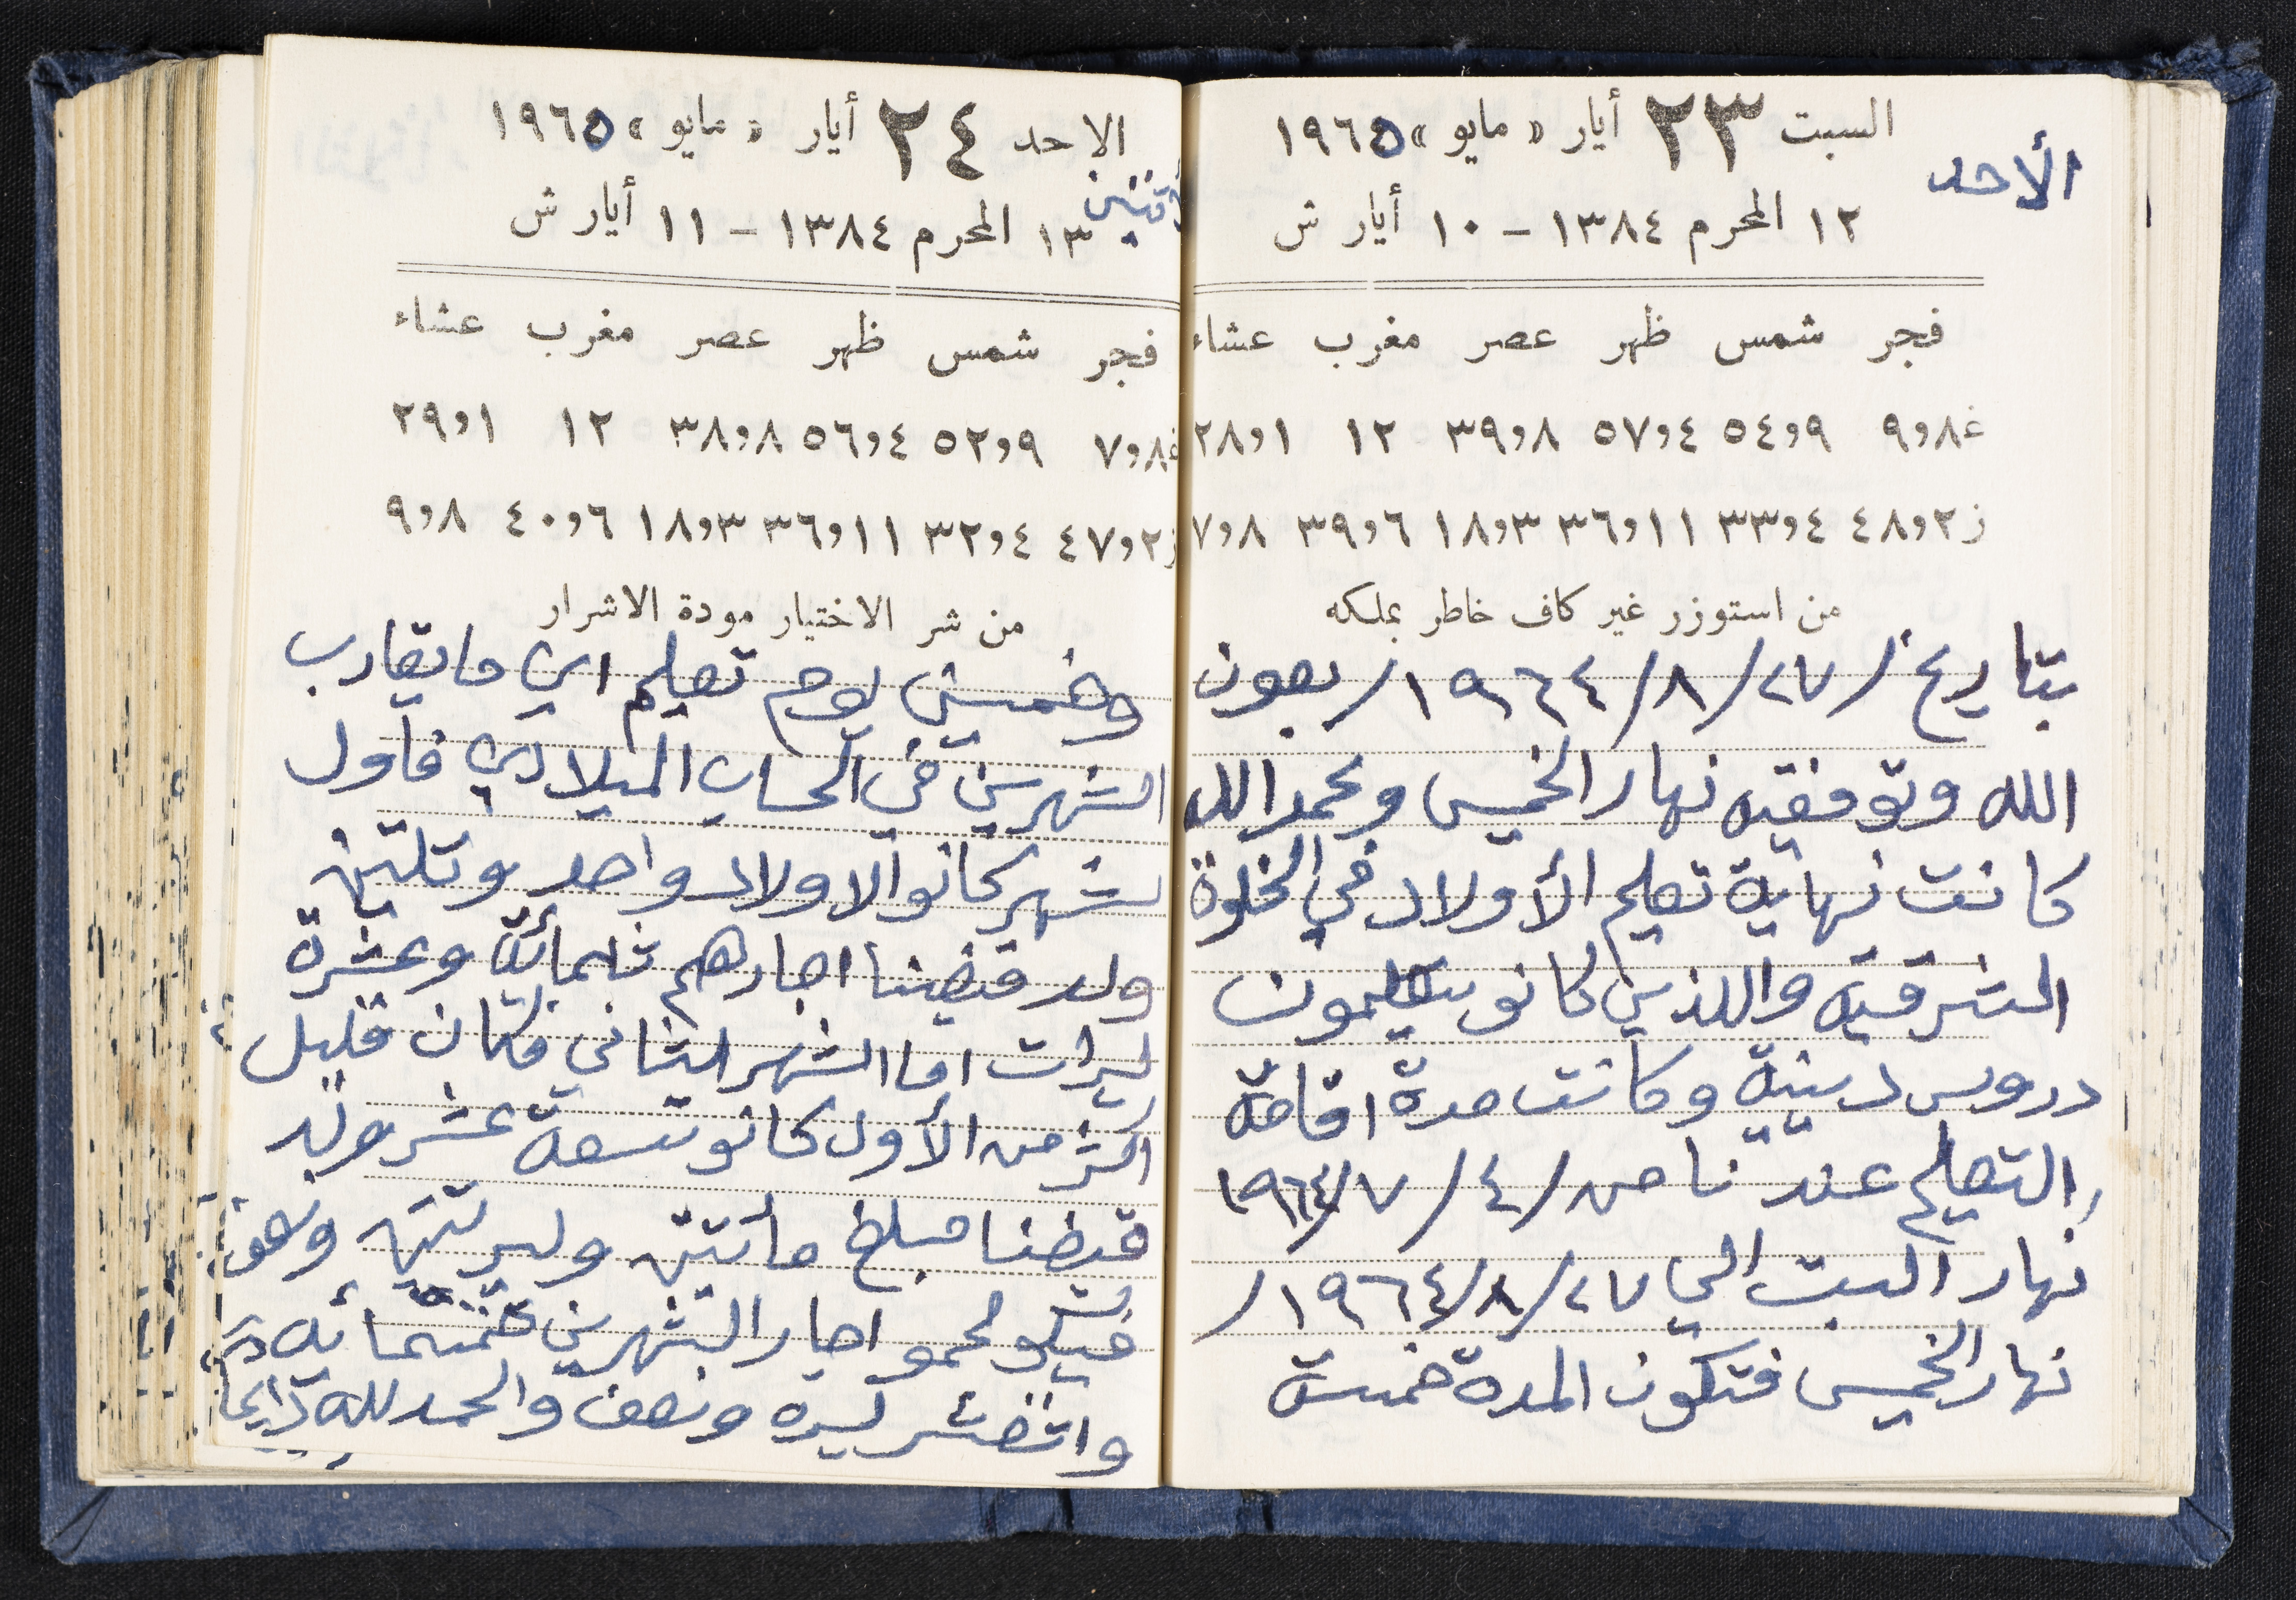 السبت ٢٣ أيار « مايو » ١٩٦٥
الأحد
١٢ المحرم ١٣٨٤ - ١٠ أيار ش
فجر شمس ظهر عصر مغرب عشاء
غ ٩٫٨ ٥٤٫٩ ٥٧٫٤ ٣٩٫٨ ١٢ ٢٨٫١
ز ٤٨٫٢ ٣٣٫٤ ٣٦٫١١ ١٨٫٣ ٣٩٫٦ ٧٫٨
من استوزر غير كاف خاطر بملكه
بتاريخ / ٢٧ / ٨ / ١٩٦٤ / بعون
الله وتوفقيه نهار الخميس وبحمد الله
كانت نهاية تعليم الأولاد في الخلوة
الشرقيه واللذين كانو يتعلمون
دروس دينية وكانت مدة اقامة
التعليم عندنا من / ٤ / ٧ / ١٩٦٤
نهار السبت الى ٢٧ / ٨ / ١٩٦٤ /
نهار الخميس فتكون المدة خمسة
الاحد ٢٤ أيار « مايو » ١٩٦٥
الأثنين
١٣ المحرم ١٣٨٤ - ١١ أيار ش
فجر شمس ظهر عصر مغرب عشاء
غ ٧٫٨ ٥٢٫٩ ٥٦٫٤ ٣٨٫٨ ١٢ ٢٩٫١
ز ٤٧٫٢ ٣٢٫٤ ٣٦٫١١ ١٨٫٣ ٤٠٫٦ ٩٫٨
من شر الاختيار مودة الاشرار
وخمسين يوم تعليم اي ما يقارب
الشهرين في الحساب الميلادي فأول
شهر كانو الاولاد واحد وتلتين
ولد قبضنا اجارهم ثلثمائة وعشرة
ليرات اما الشهر الثاني فكان قليل
اكثر من الأول كانو تسعة عشر ولد
قبضنا مبلغ مأتتين وليرتين ونصف
فيكو لمجمو اجار الشهرين خمسمائه
واتنعشر ليره ونصف والحمد لله دايما